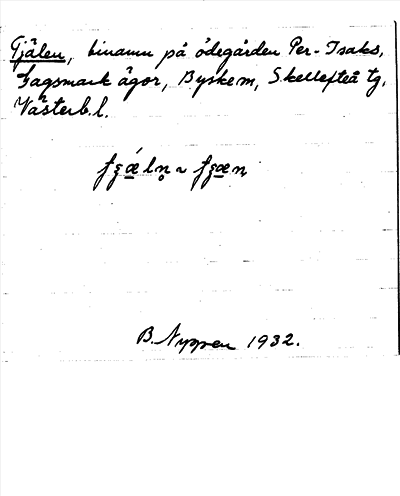 Gjälen, binamn på ödegården Per-Isaks,
Fagsmark ägor, Byskem, Skellefteå tg,
Västerb.l.
B. Nyppen 1932.